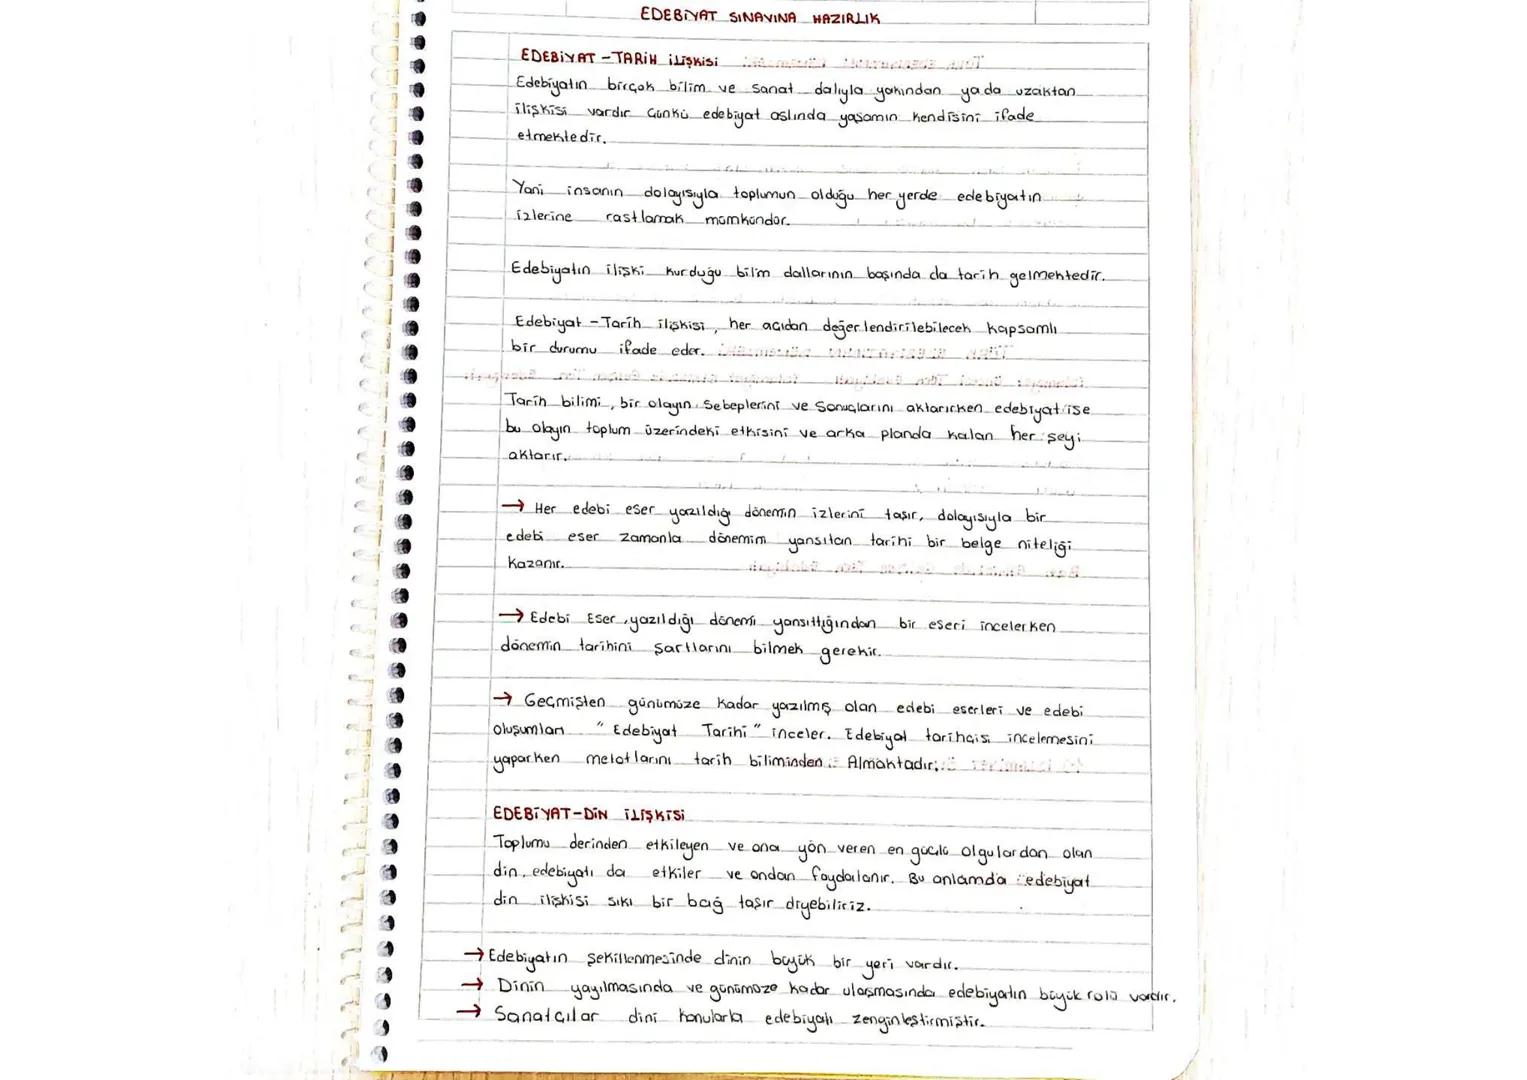 EDEBİYAT SINAVINA HAZIRLIK
EDEBİYAT - TARİH İLİŞKİSİ
Edebiyatın birçok bilim ve sanat dalıyla yakından ya da uzaktan
ilişkisi vardır Çünkü edebiyat aslında yaşamın kendisini ifade
etmektedir.
Yani insanın dolayısıyla toplumun olduğu her yerde edebiyatın
izlerine rastlamak mümkündür.
Edebiyatın ilişki kurduğu bilim dallarının başında da tarih gelmektedir.
Edebiyat - Tarih ilişkisi, her açıdan değerlendirilebilecek kapsamlı
bir durumu ifade eder.
Tarih bilimi, bir olayın sebeplerini ve sonuçlarını aktarırken edebiyat ise
bu olayın toplum üzerindeki etkisini ve arka planda kalan her şeyi
aktarır.
→ Her edebi eser yazıldığı dönemin izlerini taşır, dolayısıyla bir
edebi eser zamanla dönemim yansıtan tarihi bir belge niteliği
kazanır.
→ Edebi Eser, yazıldığı dönemi yansıttığından bir eseri incelerken
dönemin tarihini şartlarını bilmek gerekir.
→ Geçmişten günümüze kadar yazılmış olan edebi eserleri ve edebi
oluşumları "Edebiyat Tarihi" inceler. Edebiyat tarihçisi incelemesini
yaparken metotlarını tarih biliminden Almaktadır.
EDEBİYAT-DİN İLİŞKİSİ
Toplumu derinden etkileyen ve ona yön veren en güçlü olgulardan olan
din, edebiyatı da etkiler ve ondan faydalanır. Bu anlamda edebiyat
din ilişkisi sıkı bir bağ taşır diyebiliriz.
→ Edebiyatın şekillenmesinde dinin büyük bir yeri vardır.
→ Dinin yayılmasında ve günümüze kadar ulaşmasında edebiyatın büyük rolü vardır.
→ Sanatçılar dini konularla edebiyatı zenginleştirmiştir.